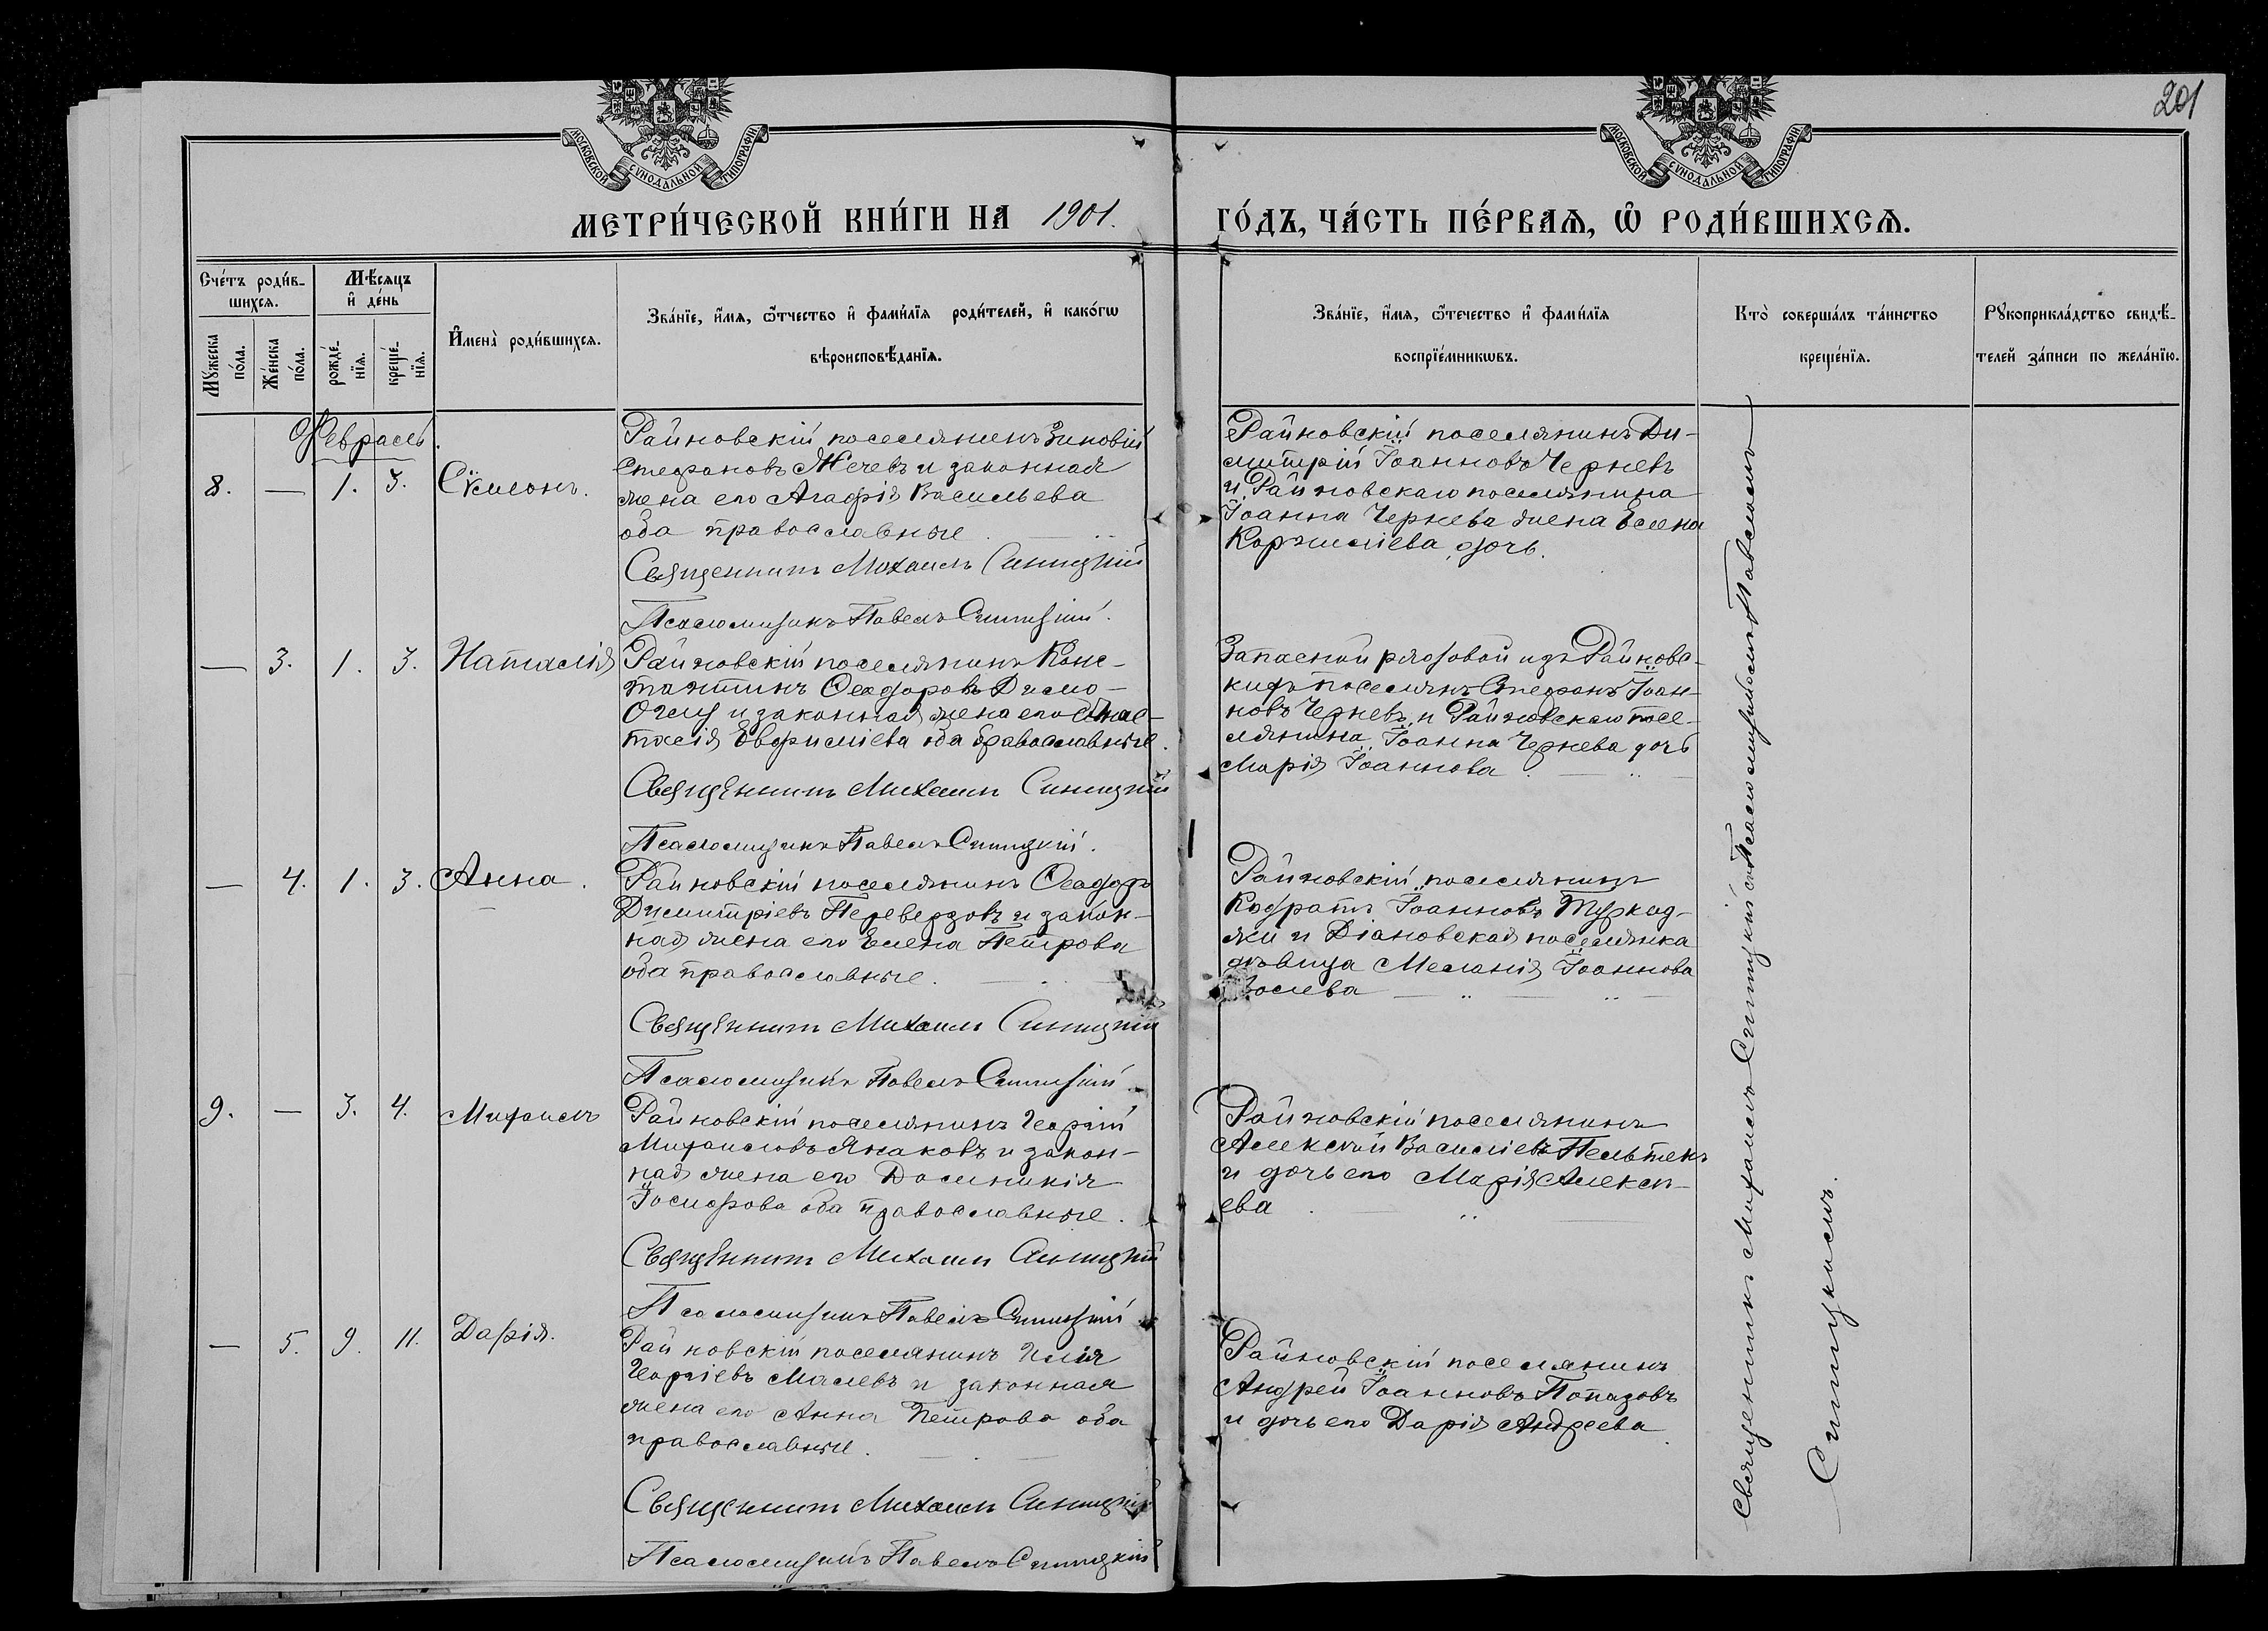 201
МОСКОВСКОЙ СѴНОДАЛЬНОЙ ТИПОГРАФІИ
МОСКОВСКОЙ СѴНОДАЛЬНОЙ ТИПОГРАФІИ
МЕТРИ́ЧЕСКОЙ КНИ́ГИ НА 1901. ГО́ДЪ, ЧА́СТЬ ПЕ́РВАѦ, Ѡ РОДИ́ВШИХСѦ.
Сче́тъ роди́в-
шихсѧ.
Мꙋ́жеска
по́ла.
Же́нска
по́ла.
Мѣ́сѧцъ
и҆ де́нь
рожде́-
нїѧ.
креще́-
нїѧ.
И҆мена̀ роди́вшихсѧ.
Зва́нїе, и҆́мѧ, ѻ҆́тчество и҆ фами́лїѧ роди́телей, и҆ како́гѡ
вѣроисповѣ́данїѧ.
Зва́нїе, и҆́мѧ, ѻ҆́течество и҆ фами́лїѧ
воспрїе́мникѡвъ.
Кто̀ соверша́лъ та́инство
креще́нїѧ.
Рꙋкоприкла́дство свидѣ́-
телей за́писи по жела́нїю.
Февраль.
8. — 1. 3. Сѵмеонъ.
Райновскій поселянинъ Зиновій
Стефановъ Жечевъ и законная
жена его Агафія Васильева
оба православные.
Священникъ Михаилъ Синицкій
Псаломщикъ Павелъ Синицкій.
Райновскій поселянинъ Ди-
митрій Іоанновъ Черневъ
и Райновскаго поселянина
Іоанна Чернева жена Елена
Корниліева дочь.
— 3. 1. 3. Наталія
Райновскій поселянинъ Конс-
тантинъ Феодоровъ Димо-
Оглу и законная жена его Анас-
тасія Евфиміева оба православные.
Священникъ Михаилъ Синицкій
Псаломщикъ Павелъ Синицкій.
Запасной рядовой изъ Райновс-
кихъ поселянъ Стефанъ Іоан-
новъ Черневъ и Райновскаго посе-
лянина Іоанна Чернева дочь
Марія Іоаннова
— 4. 1. 3. Анна.
Райновскій поселянинъ Феодоръ
Димитріевъ Перевердовъ и закон-
ная жена его Елена Петрова
оба православные.
Священникъ Михаилъ Синицкій
Псаломщикъ Павелъ Синицкій
Райновскій поселянинъ
Кодратъ Іоанновъ
и Діановская поселянка
дѣвица Меланія Іоаннова
9. — 3. 4. Михаилъ
Райновскій поселянинъ Георгій
Михаиловъ Янаковъ и закон-
ная жена его Домникія
Іосифова оба православные.
Священникъ Михаилъ Синицкій
Псаломщикъ Павелъ Синицкій
Райновскій поселянинъ
Алексѣй Василіевъ Пельтекъ
и дочь его Марія Алексѣ-
ева
— 5. 9. 11. Дарія.
Райновскій поселянинъ Илія
Георгіевъ Малевъ и законная
жена его Анна Петрова оба
православные.
Священникъ Михаилъ Синицкій
Псаломщикъ Павелъ Синицкій
Райновскій поселянинъ
Андрей Іоанновъ Попазовъ
и дочь его Дарія Андреева
Священникъ Михаилъ Синицкій съ Псаломщикомъ Павломъ
Синицкимъ.